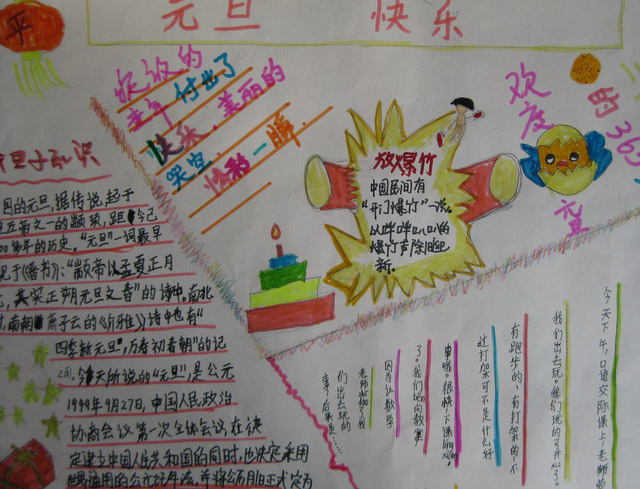 平
元旦 快乐
收获的
童年 付出了
快乐.美丽的
天空
一瞬.
欢
度
元旦
的
365
放爆竹
中国民间有
“开门爆竹”一说.
爆竹声除旧迎
新.
旦小知识
国的元旦,据传说,起于
三皇五帝之一的颛顼,距今已
00多年的历史。“元旦”一词最早
见于《晋书》:“颛帝以孟夏正月
元,其实正朔元旦之春”的诗中。南北
朝南朝萧子云的《介雅》诗中也有“
四季新元旦,万寿初春朝”的记
今天所说的“元旦”,是公元
1949年9月27日,中国人民政治
协商会议第一次全体会议,在决
定建立中国人民共和国的同时,也决定采用
世界通用的公元纪年法,并将公历1月1日正式定为
今天下午,口语交际课上,老师的
我们出去玩。我们玩的可开心了。
有跑步的、有打架的不
过打架可不是什么好
事哦。很快下课
了。我们ben向教室
因为认数学
老师
们出去玩的
事,后来是……